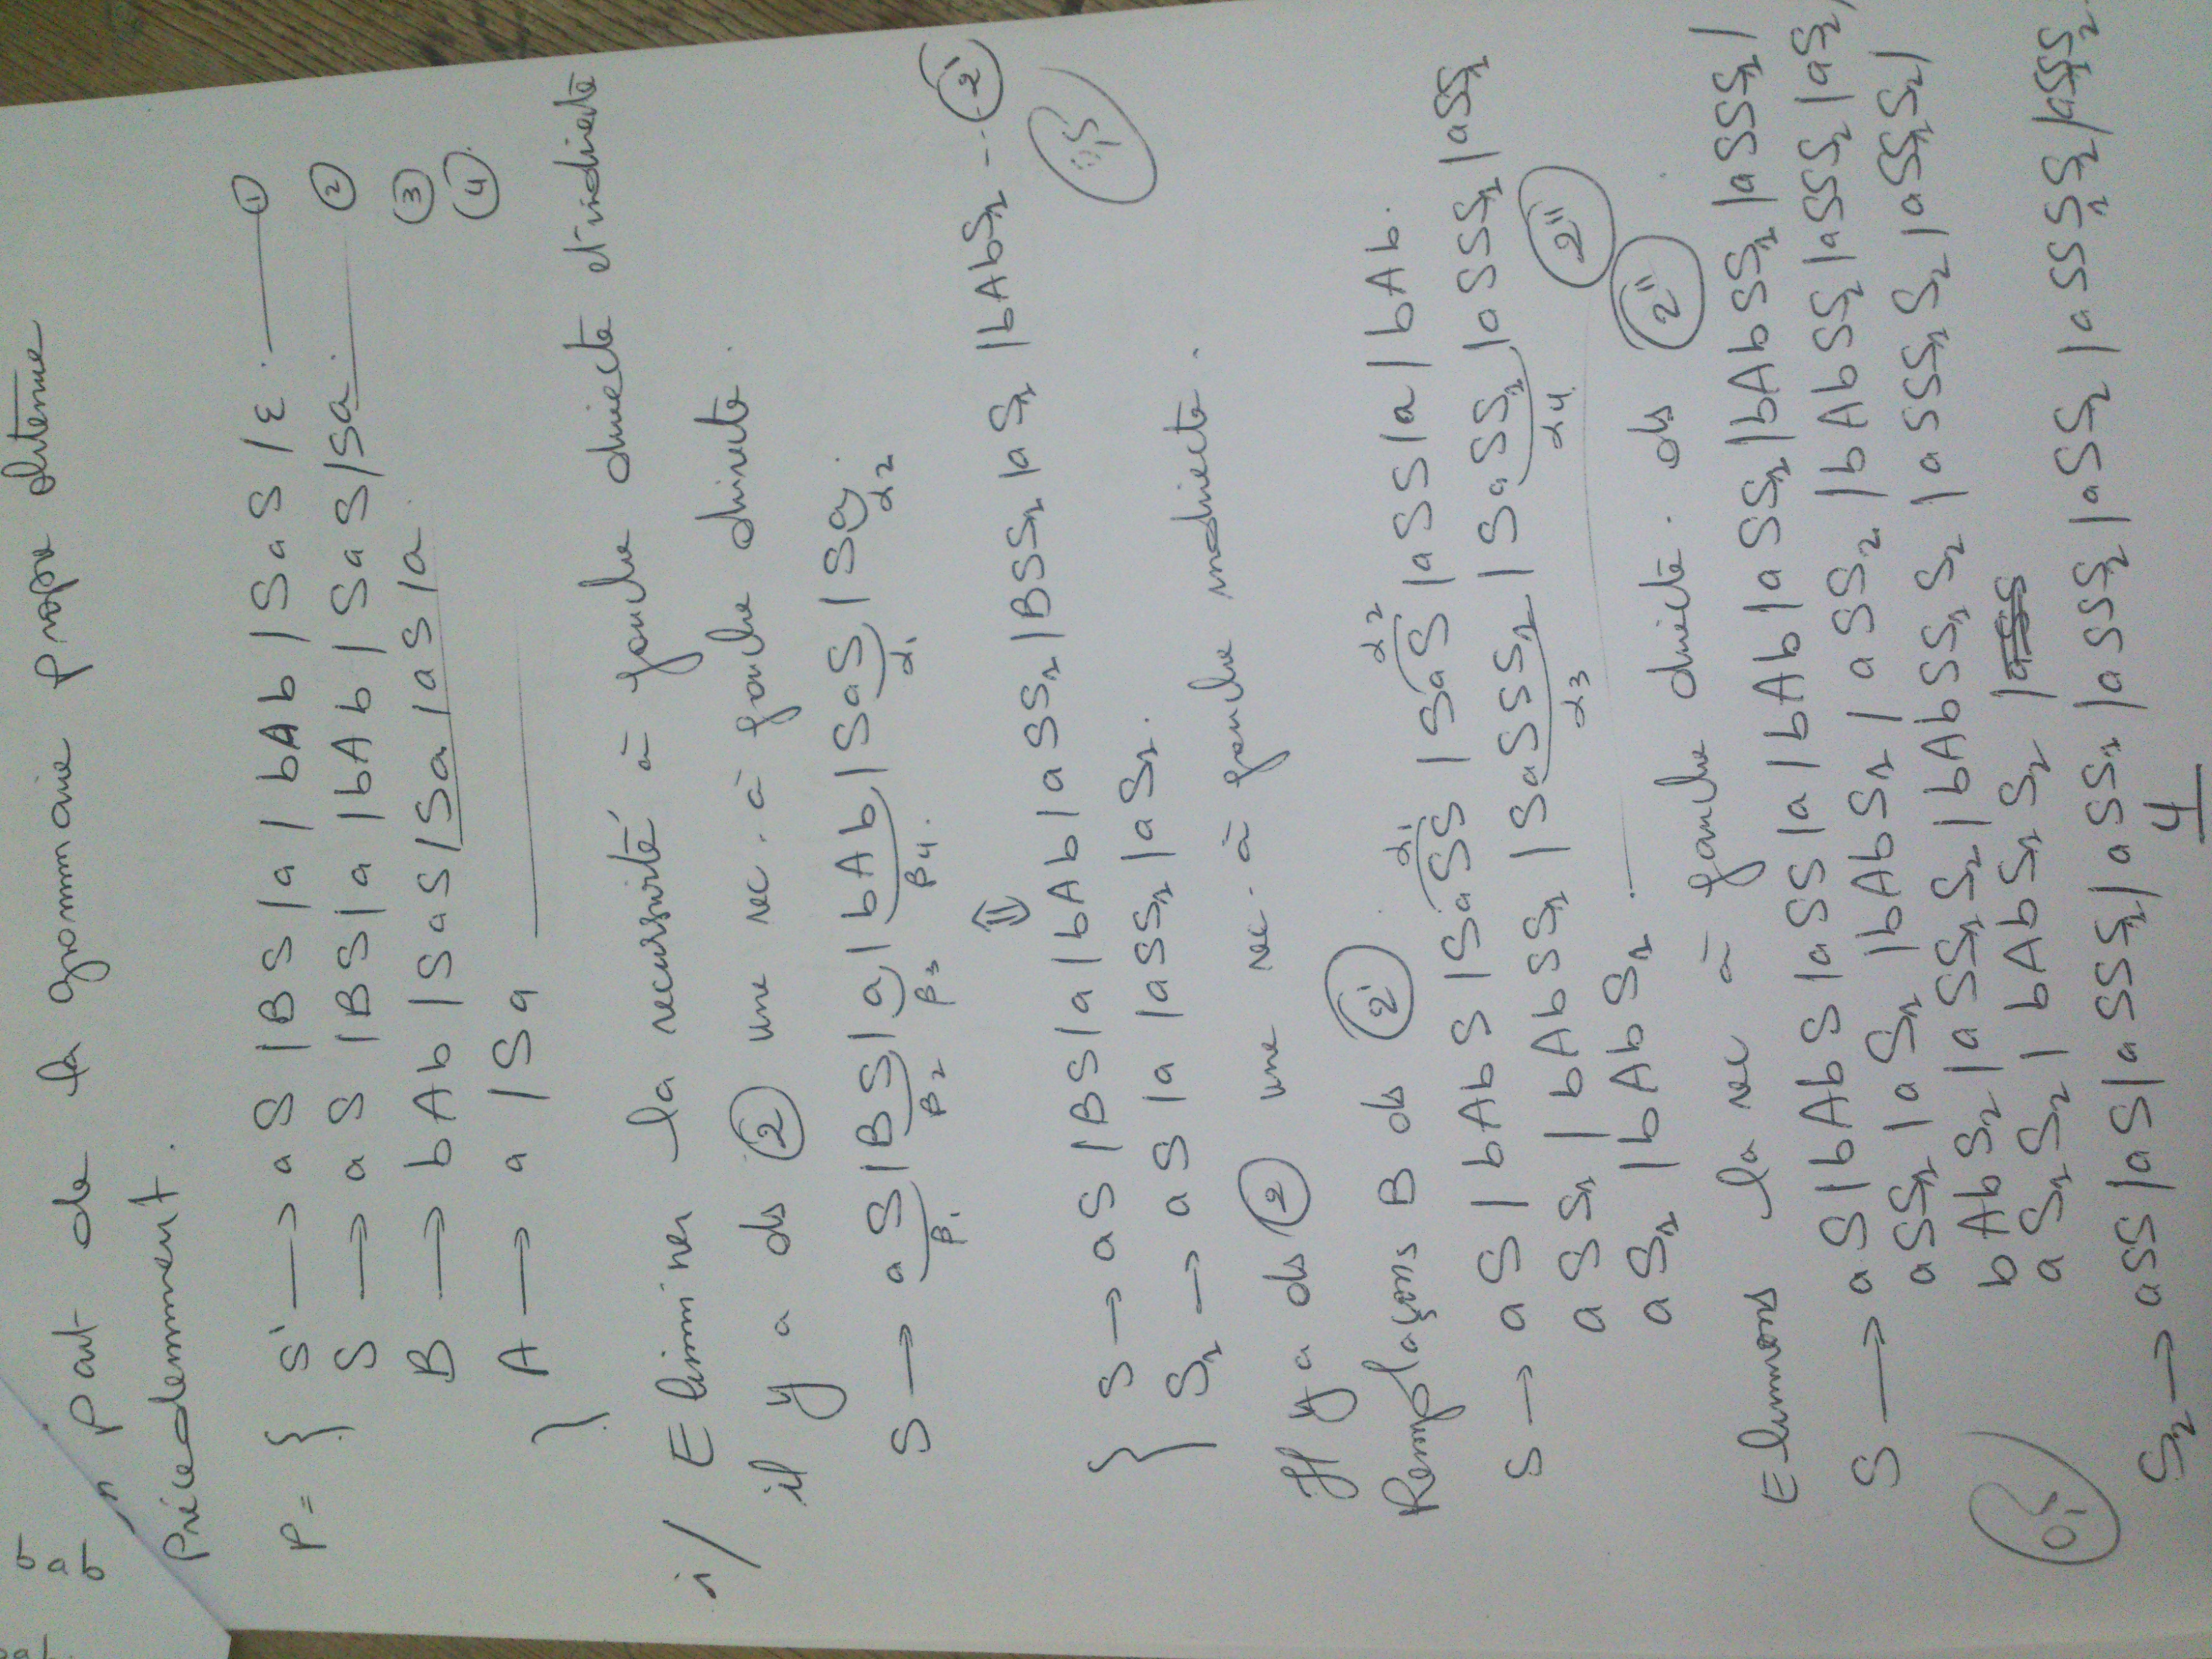 bab
n part de la grammaire propre obtenue
Précedemment.
P = { S' → aS | BS | a | bAb | SaS | ε. ①
S → aS | BS | a | bAb | SaS | Sa. ②
B → bAb | SaS | Sa | aS | a. ③
A → a | Sa ④
}
1/ Eliminer la recursivité à gauche directe et indirecte
il y a ds ② une rec. à gauche directe.
S → aS | BS | a | bAb | SaS | Sa.
β1 β2 β3 β4. α1 α2
⇕
{ S → aS | BS | a | bAb | aSS1 | BSS1 | aS1 | bAbS1 -- ②'
S1 → aS | a | aSS1 | aS1.
0,5
Il y a ds ② une rec. à gauche indirecte.
Remplaçons B ds ②'.
α1 α2
S → aS | bAbS | SaSS | SaS | aSS | a | bAb.
aSS1 | bAbSS1 | SaSSS1 | SaSS1 | aSSS1 | aSS1
α3 α4
aS1 | bAbS1. ②''
Elimnons la rec à gauche directe. ds ②''.
S → aS | bAbS | aSS | a | bAb | aSS1 | bAbSS1 | aSSS1 |
aSS1 | aS1 | bAbS1 | aSS2 | bAbSS2 | aSSS2 | aS2 |
bAbS2 | aSS1S2 | bAbSS1S2 | aSSS1S2 | aSS1S2 |
aS1S2 | bAbS1S2 | aSS
0,5
S2 → aSS | aS | aSSS1 | aSS1 | aSSS2 | aSS2 | aSSS1S2 | aSS1S2
4